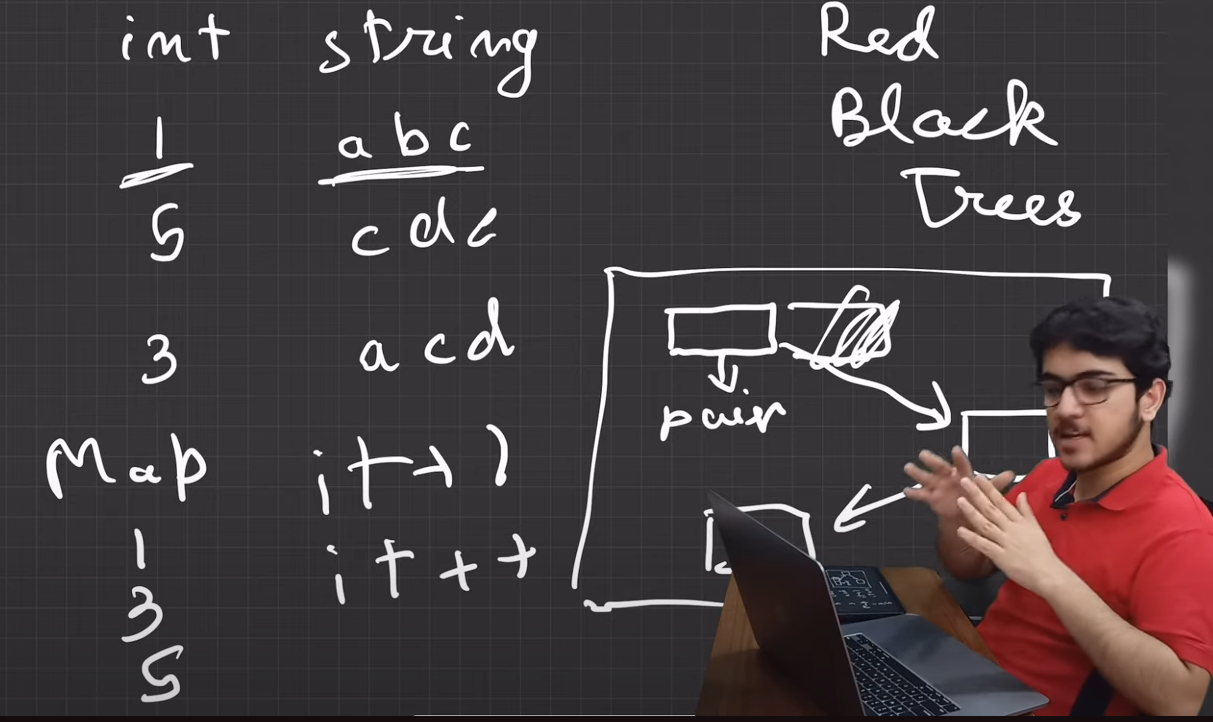 int string
1 abc
5 cdc
3 acd
Map
1
3
5
it+1
it++
Red
Black
Trees
pair